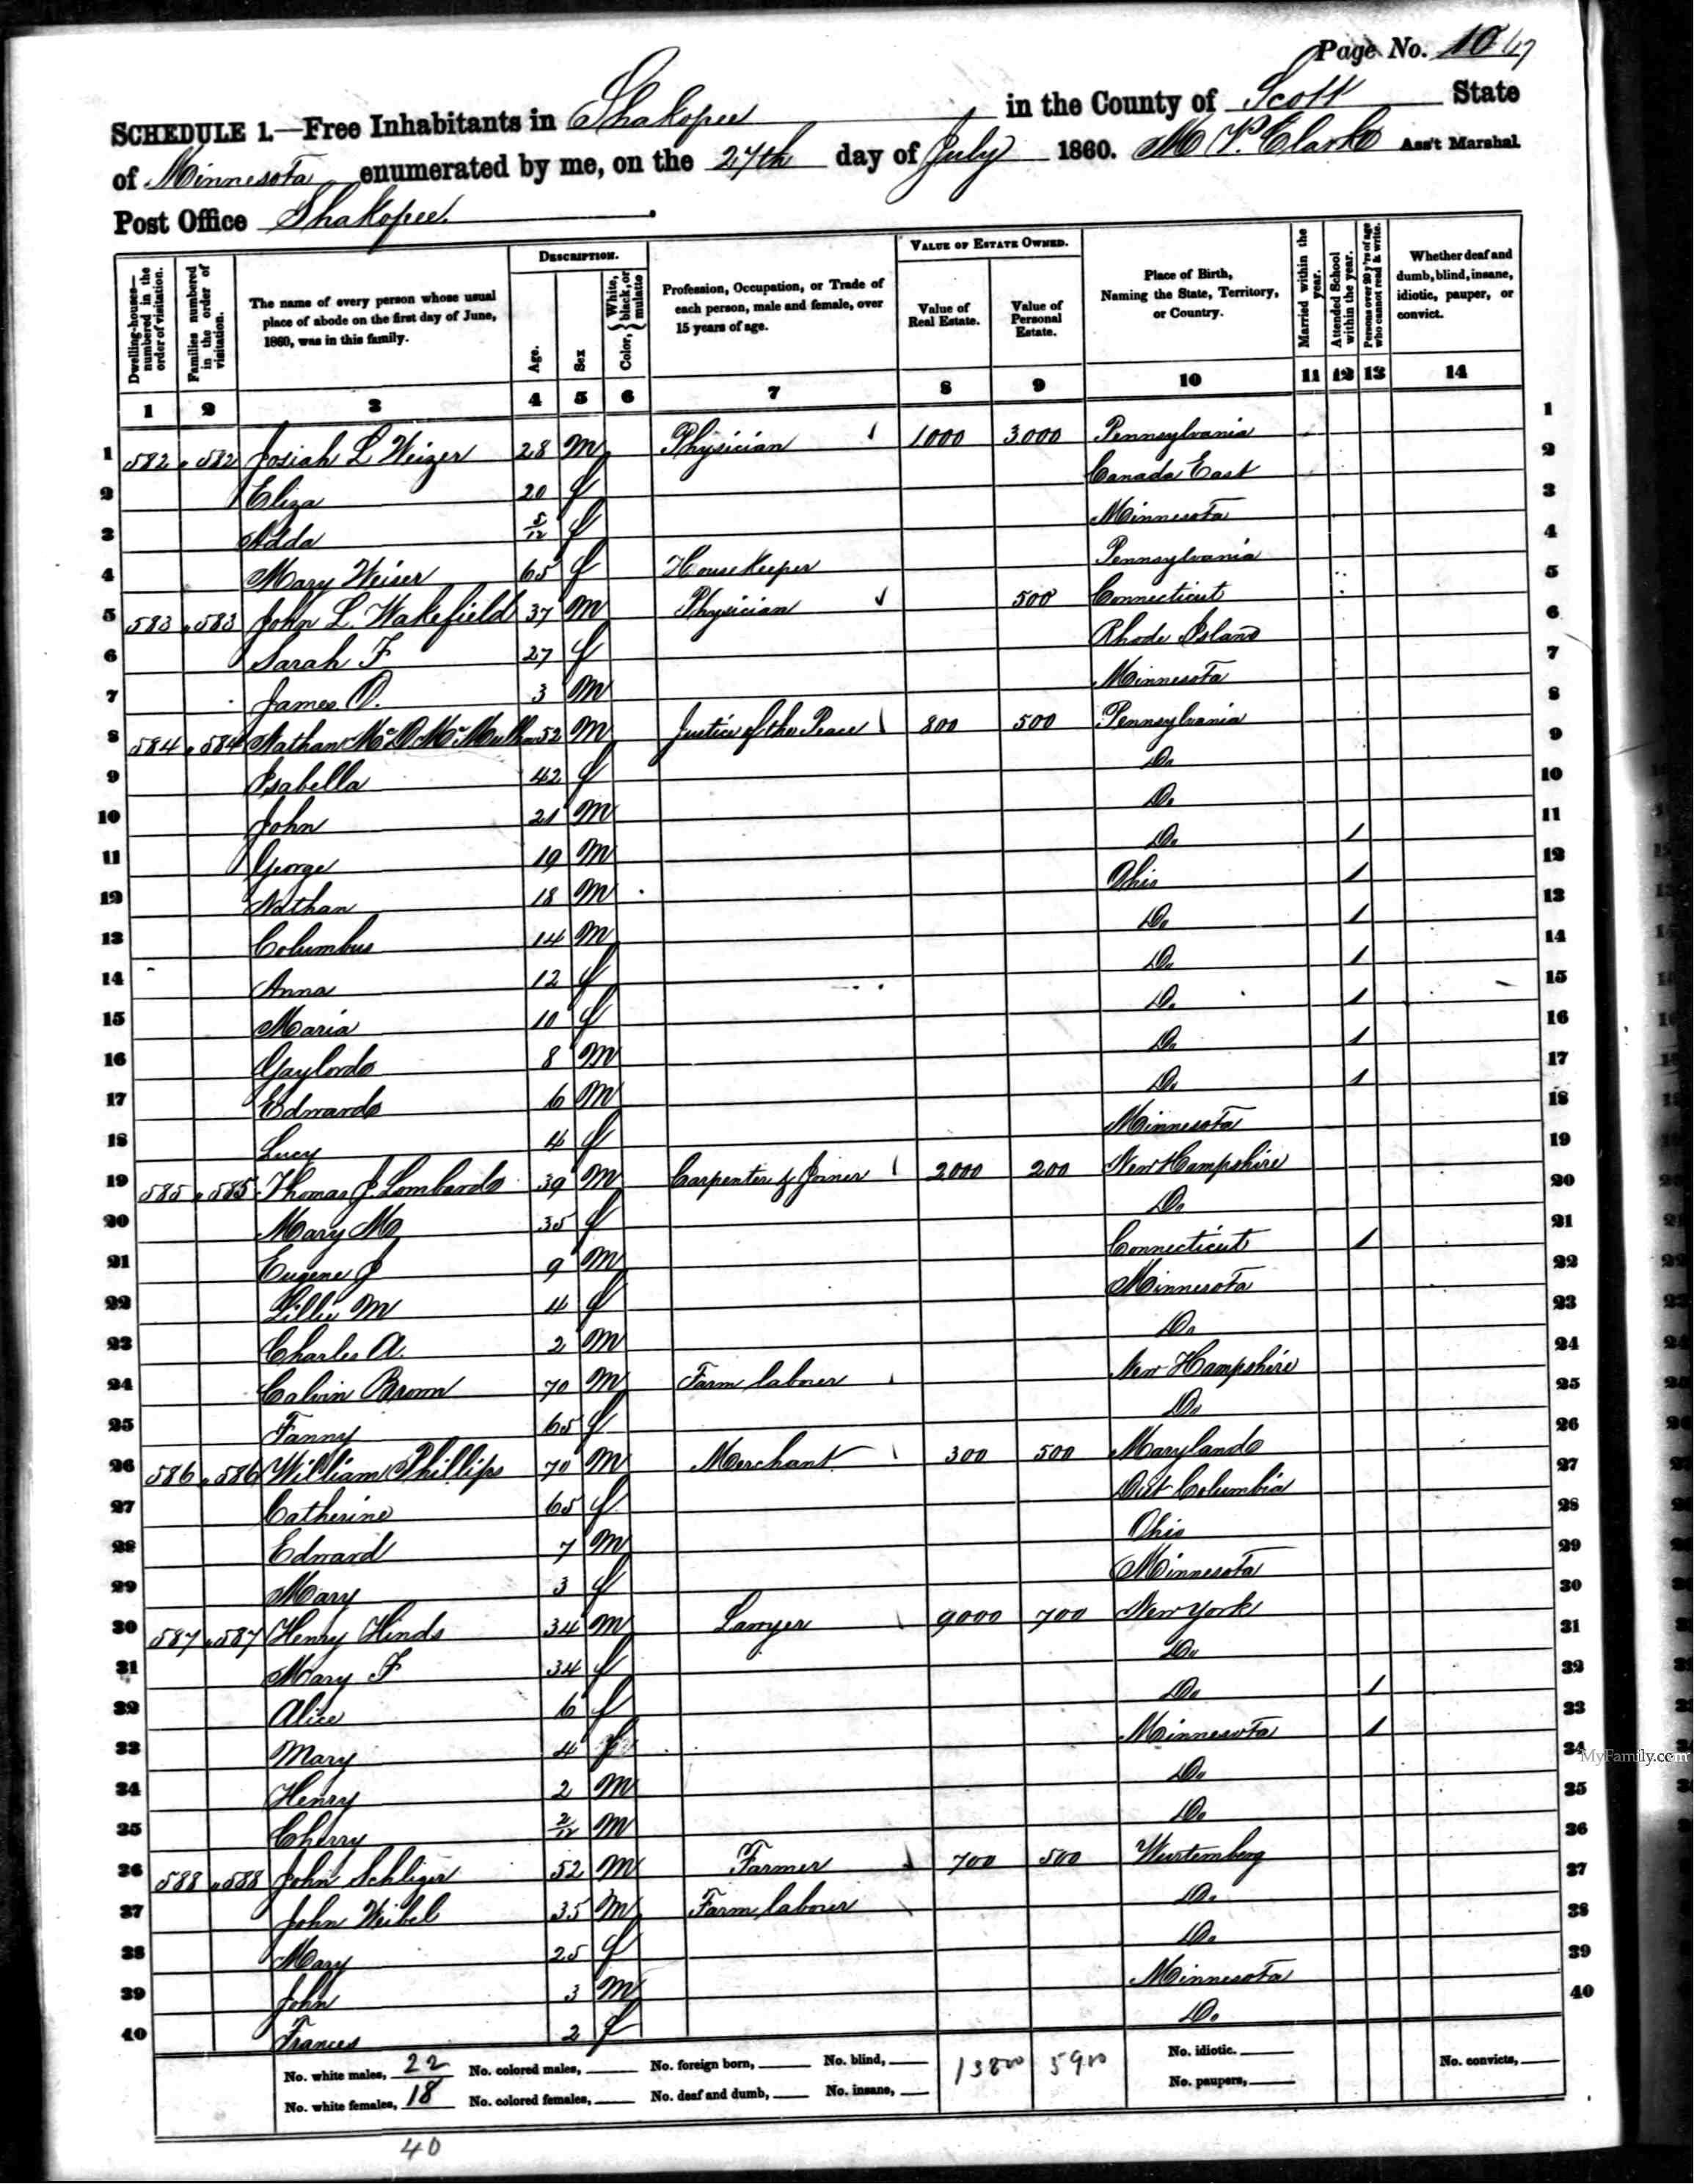 Page No. 10
SCHEDULE 1.—Free Inhabitants in Shakopee in the County of Scott State
of Minnesota enumerated by me, on the 27th day of July 1860. M P. Clarke Ass't Marshal
Post Office Shakopee.
Dwelling-houses—numbered in the order of visitation. Families numbered in the order of visitation. The name of every person whose usual place of abode on the first day of June, 1860, was in this family. DESCRIPTION. Age. Sex Color, { White, black, or mulatto Profession, Occupation, or Trade of each person, male and female, over 15 years of age. VALUE OF ESTATE OWNED. Value of Real Estate. Value of Personal Estate. Place of Birth, Naming the State, Territory, or Country. Married within the year. Attended School within the year. Persons over 20 y'rs of age who cannot read & write. Whether deaf and dumb, blind, insane, idiotic, pauper, or convict.
1 2 3 4 5 6 7 8 9 10 11 12 13 14
1 582 582 Josiah L Weizer 28 M Physician 1000 3000 Pennsylvania 1
2 Eliza 20 f Canada East 2
3 Adda 5/12 f Minnesota 3
4 Mary Weiser 65 f House Keeper Pennsylvania 4
5 583 583 John L. Wakefield 37 M Physician 500 Connecticut 5
6 Sarah F 27 f Rhode Island 6
7 James O. 3 M Minnesota 7
8 584 584 Nathan Mc D Mc Mullen 52 M Justice of the Peace 800 500 Pennsylvania 8
9 Isabella 42 f Do 9
10 John 21 M Do. 10
11 George 19 M Do. 1 11
12 Nathan 18 M Ohio 1 12
13 Columbus 14 M Do. 1 13
14 Anna 12 f Do. 1 14
15 Maria 10 f Do. 1 15
16 Gaylord 8 M Do 1 16
17 Edward 6 M Do 1 17
18 Lucy 4 f Minnesota 18
19 585 585 Thomas J. Lombard 39 M Carpenter & Joiner 2000 200 New Hampshire 19
20 Mary M 35 f Do 20
21 Eugene J 9 M Connecticut 1 21
22 Lillie M 4 f Minnesota 22
23 Charles A. 2 M Do 23
24 Calvin Brown 70 M Farm laborer New Hampshire 24
25 Fanny 65 f Do 25
26 586 586 William Phillips 70 M Merchant 300 500 Maryland 26
27 Catherine 65 f Dist Columbia 27
28 Edward 7 M Ohio 28
29 Mary 3 f Minnesota 29
30 587 587 Henry Hinds 34 M Lawyer 9000 700 New York 30
31 Mary F 34 f Do 31
32 Alice 6 f Do 1 32
33 Mary 4 f Minnesota 1 33
34 Henry 2 M Do 34
35 Cherry 2/12 M Do 35
36 588 588 John Schliger 52 M Farmer 700 500 Wurtemberg 36
37 John Weibel 35 M Farm laborer Do. 37
38 Mary 25 f Do. 38
39 John 3 M Minnesota 39
40 Frances 2 f Do. 40
No. white males, 22 No. colored males, No. foreign born, No. blind, 13800 5900 No. idiotic. No. convicts,
No. white females, 18 No. colored females, No. deaf and dumb, No. insane, No. paupers,
40
MyFamily.com